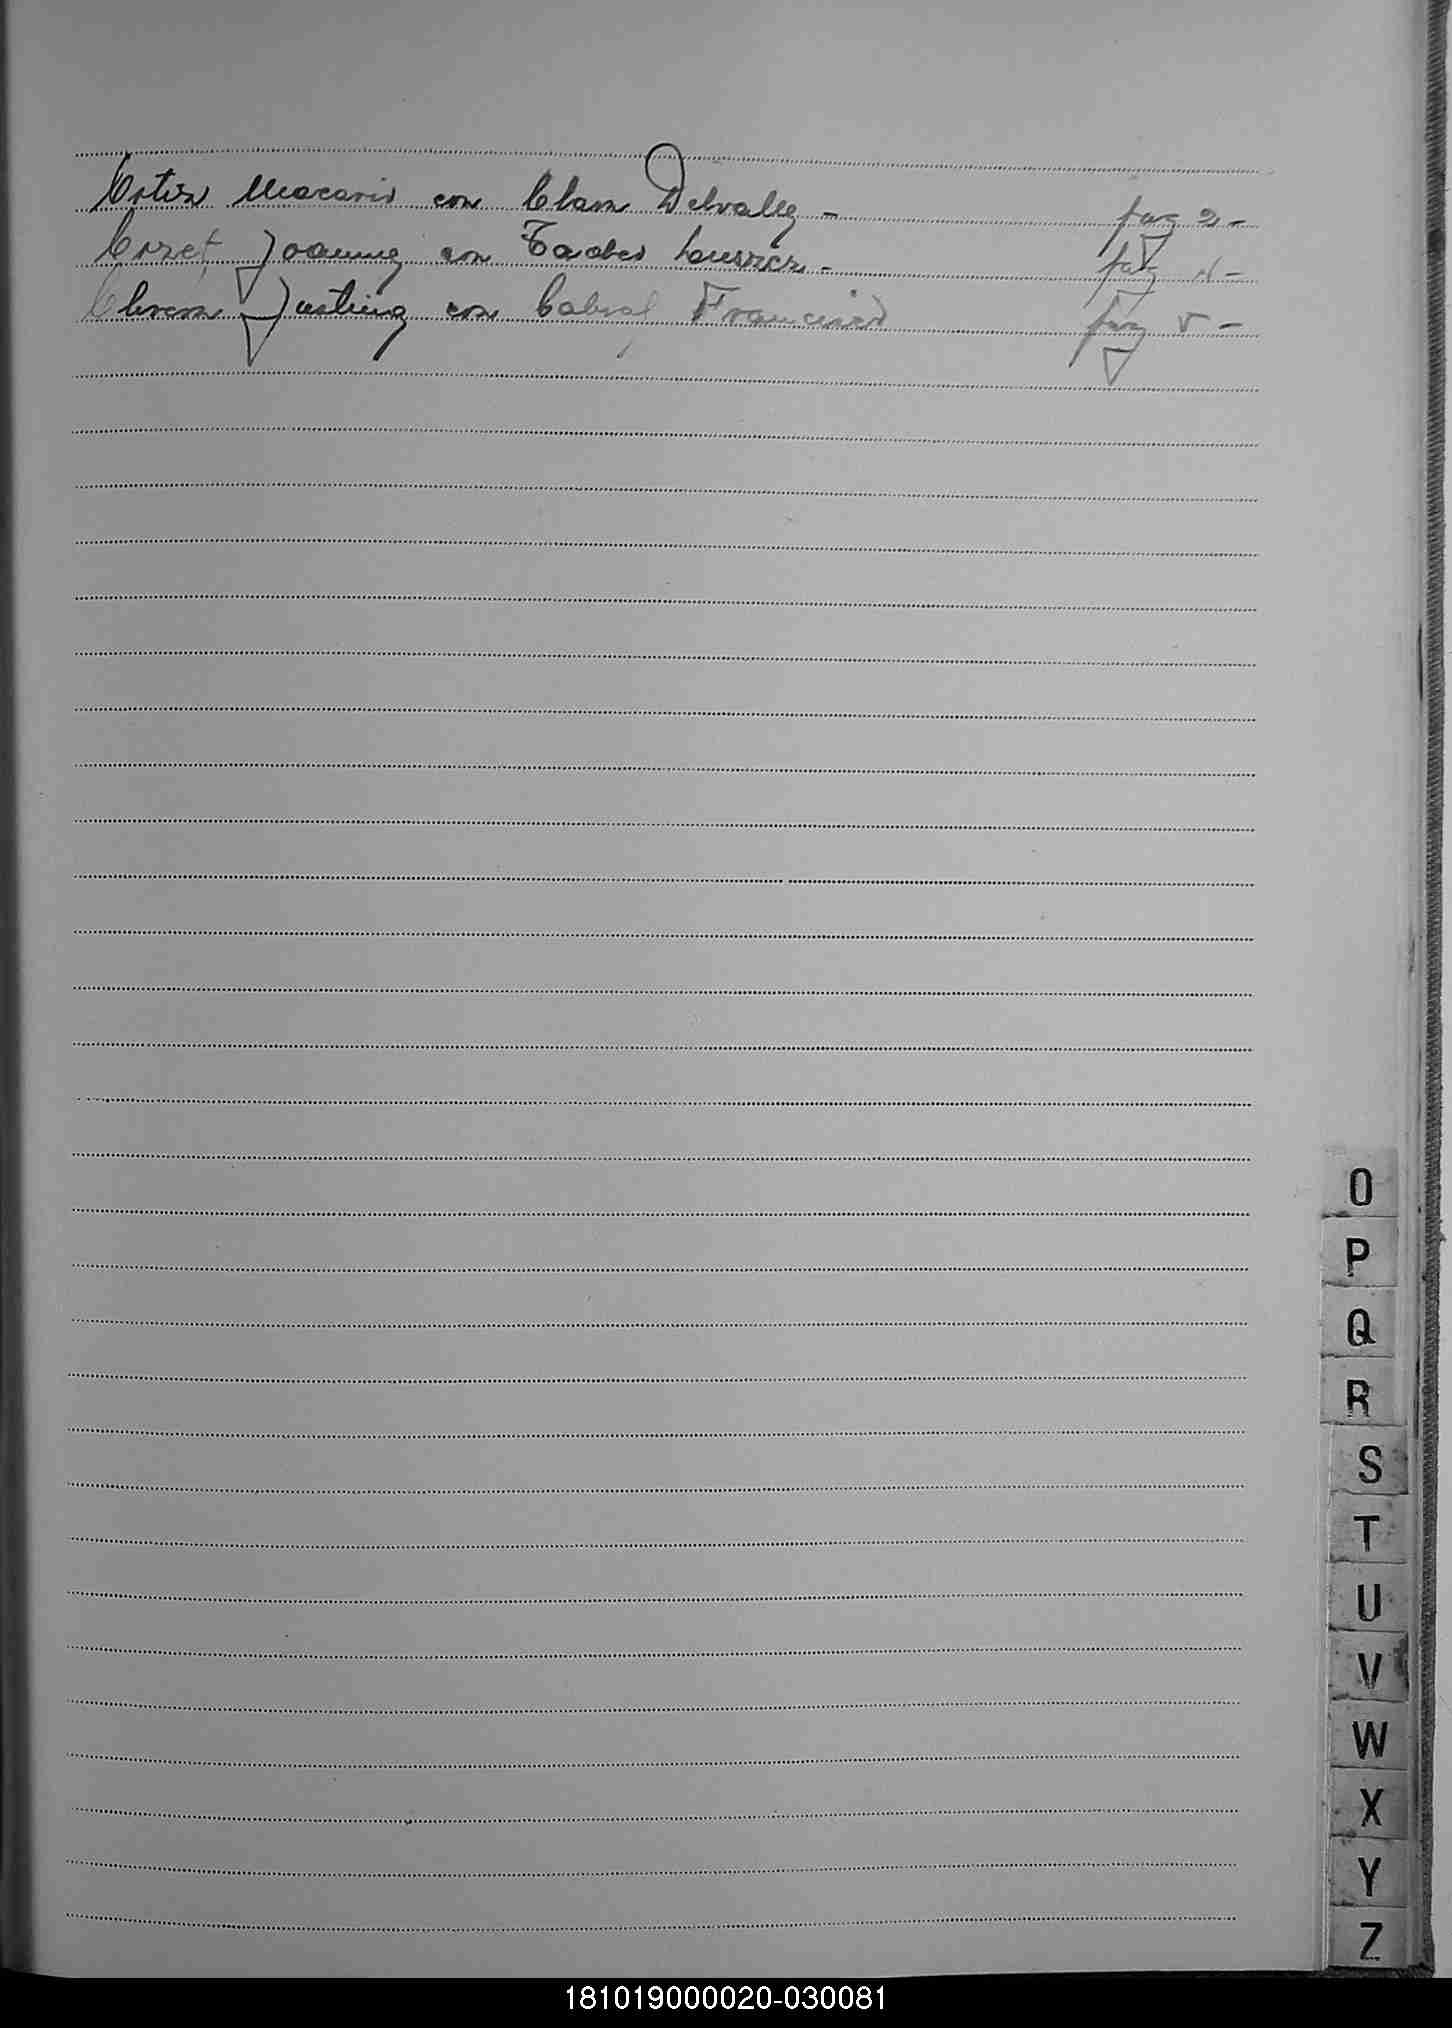 Ortiz Macario con Clara Delvalle - pag 2 -
Orzef Joanna con Tadeo pag 4 -
Justina con Cabral Francisco pag 5 -
O
P
Q
R
S
T
U
V
W
X
Y
Z
181019000020-030081